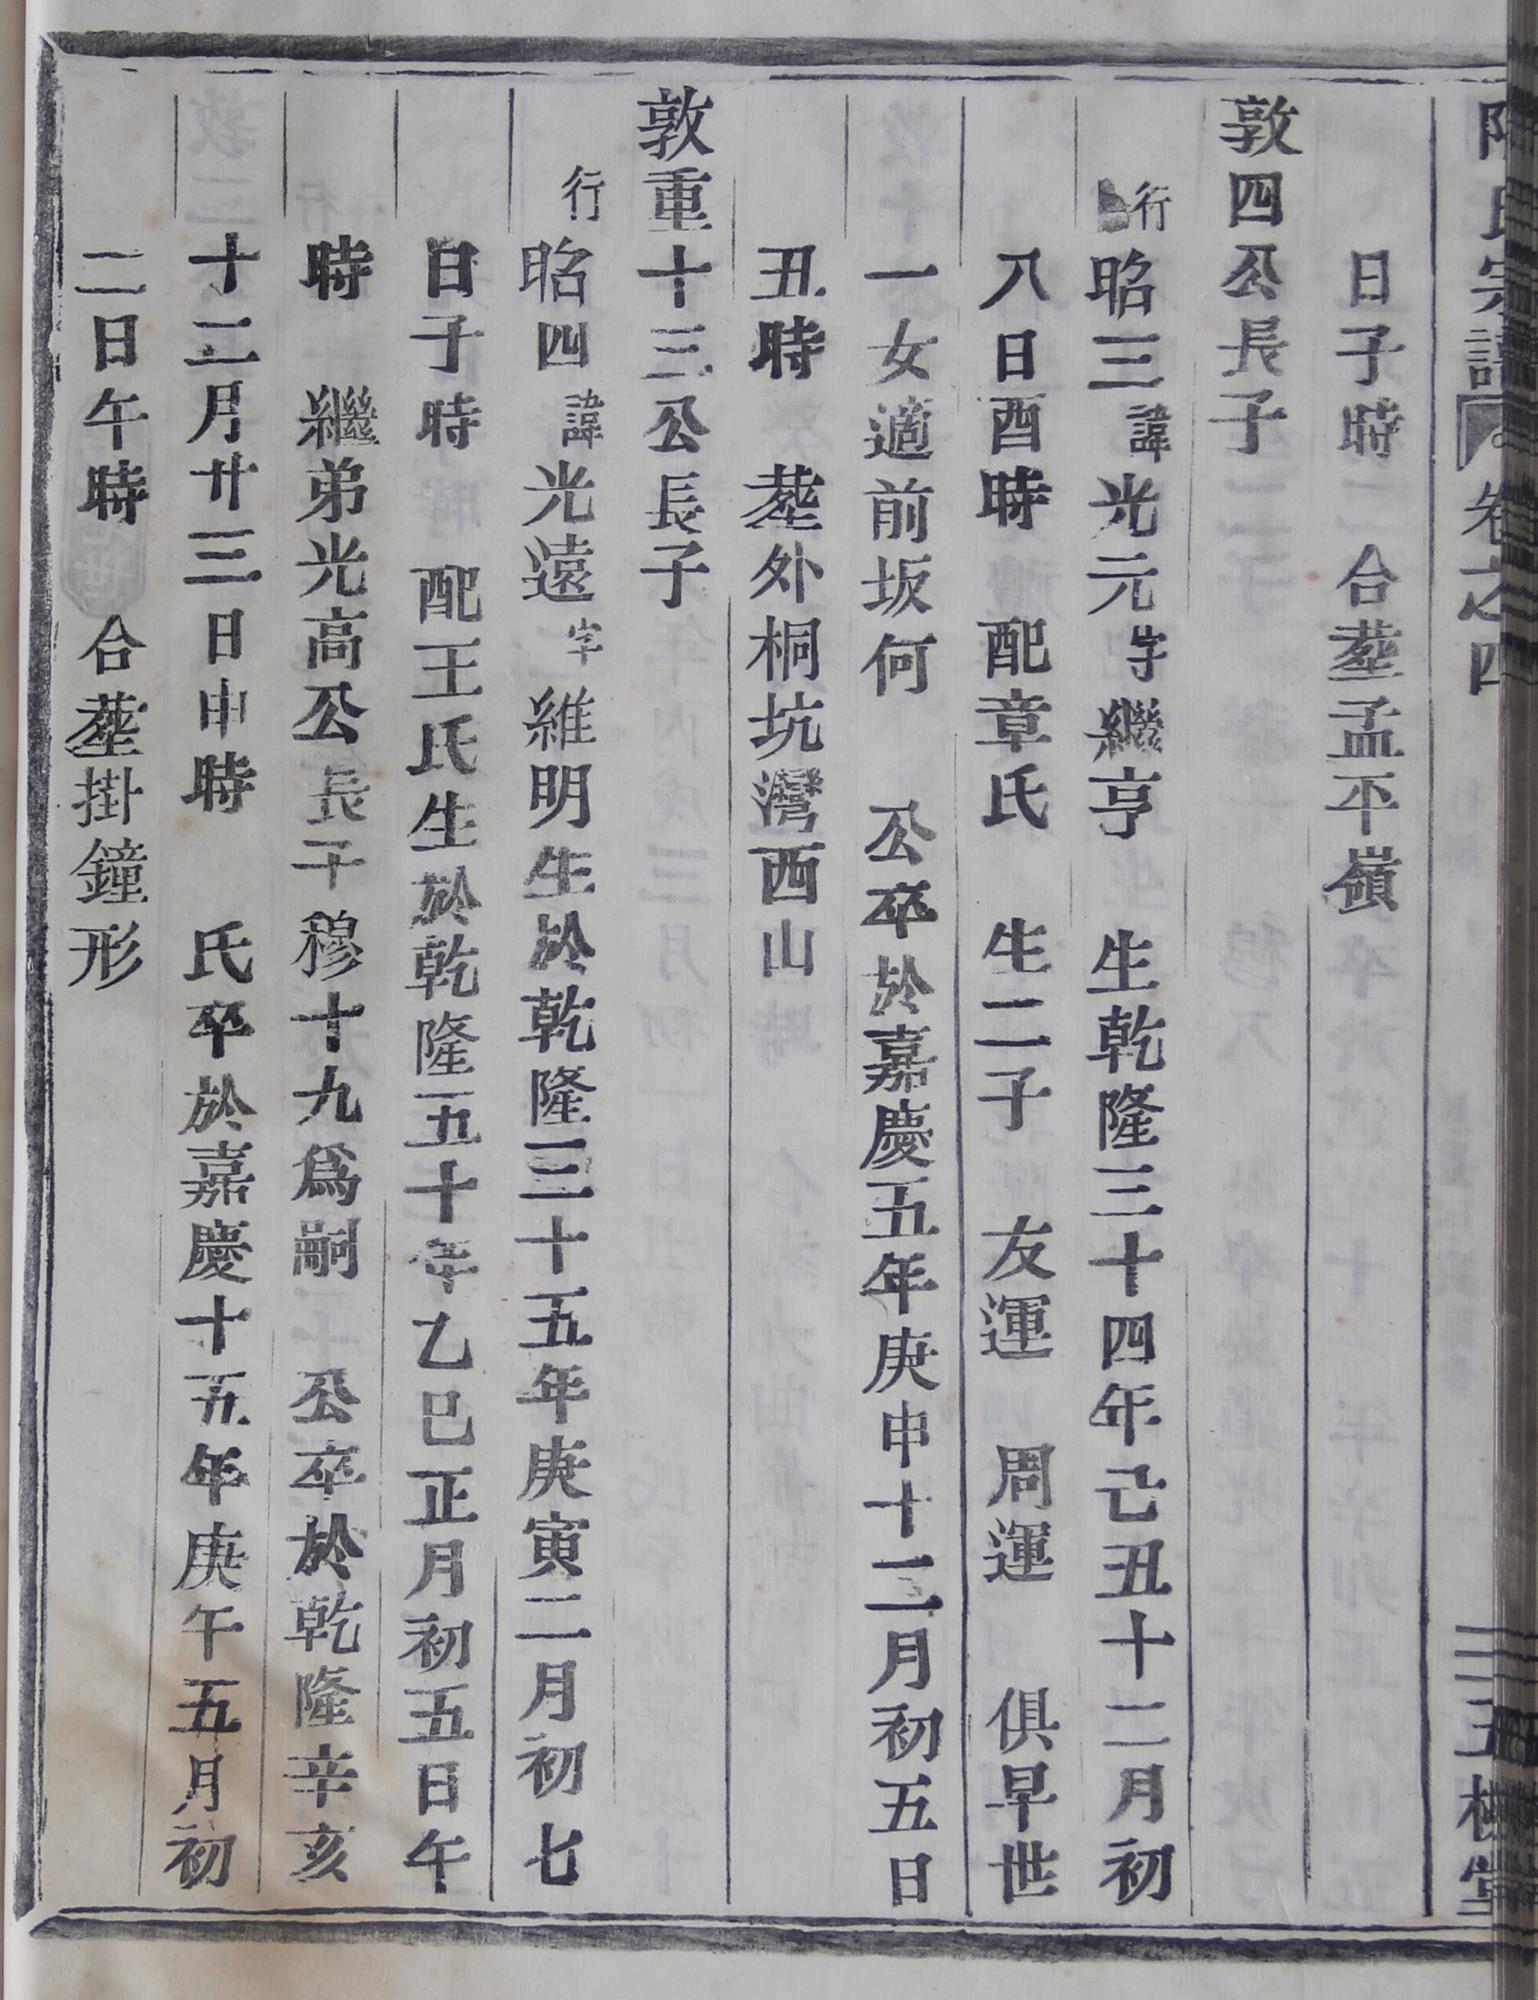 陳氏宗譜 卷之四 三五樹堂
日子時 合塟孟平嶺
敦四公長子
行昭三諱光元字繼亨 生乾隆三十四年己丑十二月初
八日酉時 配章氏 生二子 友運 周運 俱早世
一女適前坂何 公卒於嘉慶五年庚申十二月初五日
丑時 塟外桐坑灣西山
敦重十三公長子
行昭四諱光遠字維明生於乾隆三十五年庚寅二月初七
日子時 配王氏生於乾隆五十年乙巳正月初五日午
時 繼弟光高公長子穆十九爲嗣 公卒於乾隆辛亥
十二月廿三日申時 氏卒於嘉慶十五年庚午五月初
二日午時 合塟掛鐘形